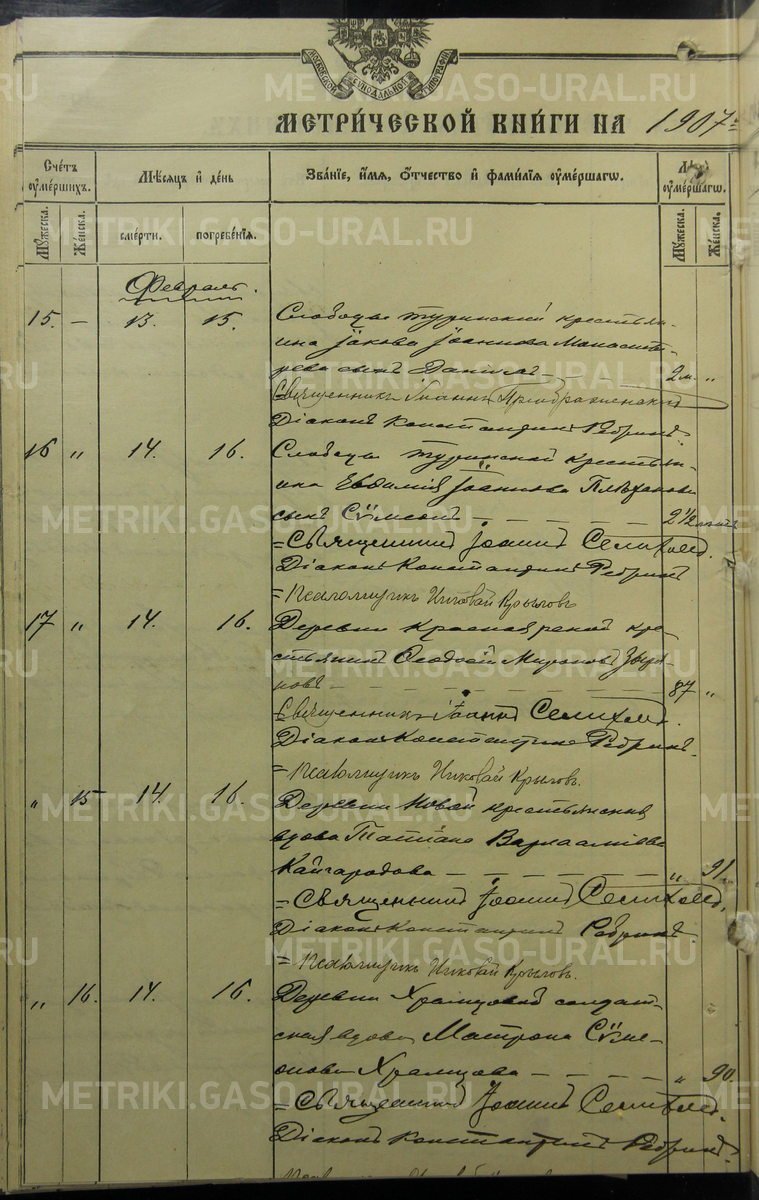 МОСКОВСКОЙ СѴНОДАЛЬНОЙ ТИПОГРАФІИ
МЕТРИ́ЧЕСКОЙ КНИ́ГИ НА 1907
Счетъ ᲂу҆мершихъ. Мѣсяцъ и҆ день Зва́нїе, и҆́мѧ, ѻ҆́тчество и҆ фами́лїѧ ᲂу҆ме́ршагѡ. ᲂу҆ме́ршагѡ.
Мꙋ́жеска. Же́нска. сме́рти. погребе́нїѧ. Мꙋ́жеска. Же́нска.
Февраль.
15. — 13. 15. Слободы туринской крестьян-
ина Іакова Іоаннова Монасты-
рева сынъ Даніилъ — 2 м. "
Священникъ Іоаннъ Преображенскій
Діаконъ Константинъ Ребринъ
16 " 14. 16. Слободы туринской крестьян-
ина Евѳимія Іоаннова Плѣханова
сынъ Сѵмеонъ — — — — 2 1/2
= Священникъ Іоаннъ Селиховъ.
Діаконъ Константинъ Ребринъ
= Псаломщикъ Николай Крыловъ
17 " 14. 16. Деревни Красноярской кре-
стьянинъ Ѳеодосій Мироновъ Зыря-
новъ — — — — 87 "
Священникъ Іоаннъ Селиховъ.
Діаконъ Константинъ Ребринъ.
= Псаломщикъ Николай Крыловъ.
" 15 14. 16. Деревни Новой крестьянская
вдова Татіана Варлааміева
Кайгородова — — — — " 91.
= Священникъ Іоаннъ Селиховъ.
Діаконъ Константинъ Ребринъ.
= Псаломщикъ Николай Крыловъ.
" 16. 14. 16. Деревни Храмцовой солдат-
ская вдова Матрона Сѵме-
онова Храмцова — — — — " 90.
= Священникъ Іоаннъ Селиховъ.
Діаконъ Константинъ Ребринъ.
METRIKI.GASO-URAL.RU